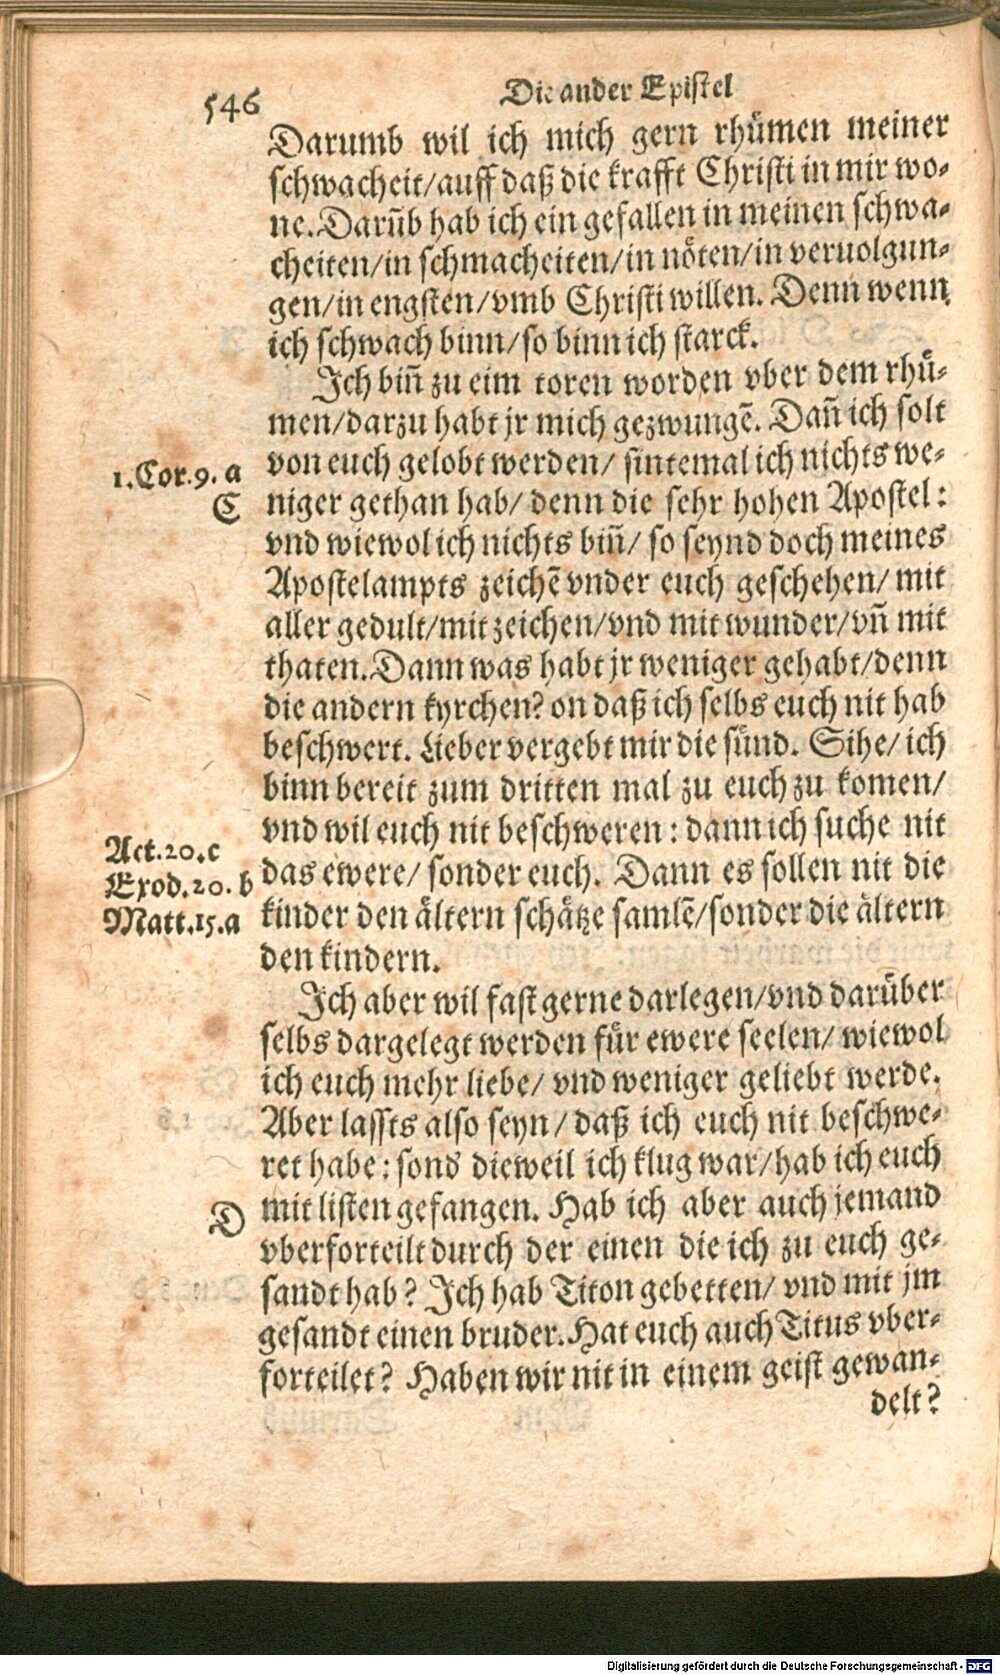 546
Die ander Epistel
Darumb wil ich mich gern rhümen meiner
schwacheit/auff daß die krafft Christi in mir wo-
ne. Darũb hab ich ein gefallen in meinen schwa-
cheiten/in schmacheiten/in nöten/in veruolgun-
gen/in engsten/vmb Christi willen. Denn wenn
ich schwach binn/so binn ich starck.
Ich biñ zu eim toren worden vber dem rhü-
men/darzu habt jr mich gezwungẽ. Dañ ich solt
1.Cor.9. a
von euch gelobt werden/ sintemal ich nichts we-
C
niger gethan hab/ denn die sehr hohen Apostel:
vnd wiewol ich nichts biñ/ so seynd doch meines
Apostelampts zeichẽ vnder euch geschehen/ mit
aller gedult/mit zeichen/vnd mit wunder/vñ mit
thaten. Dann was habt jr weniger gehabt/denn
die andern kyrchen? on daß ich selbs euch nit hab
beschwert. Lieber vergebt mir die sünd. Sihe/ ich
binn bereit zum dritten mal zu euch zu komen/
vnd wil euch nit beschweren: dann ich suche nit
Act.20.c
das ewere/ sonder euch. Dann es sollen nit die
Exod.20. b
kinder den ältern schätze samlẽ/sonder die ältern
Matt.15.a
den kindern.
Ich aber wil fast gerne darlegen/vnd darüber
selbs dargelegt werden für ewere seelen/ wiewol
ich euch mehr liebe/ vnd weniger geliebt werde.
Aber lassts also seyn/ daß ich euch nit beschwe-
ret habe: sond dieweil ich klug war/hab ich euch
D
mit listen gefangen. Hab ich aber auch jemand
vberforteilt durch der einen die ich zu euch ge-
sandt hab? Ich hab Titon gebetten/ vnd mit jm
gesandt einen bruder. Hat euch auch Titus vber-
forteilet? Haben wir nit in einem geist gewan-
delt?
Digitalisierung gefördert durch die Deutsche Forschungsgemeinschaft - DFG